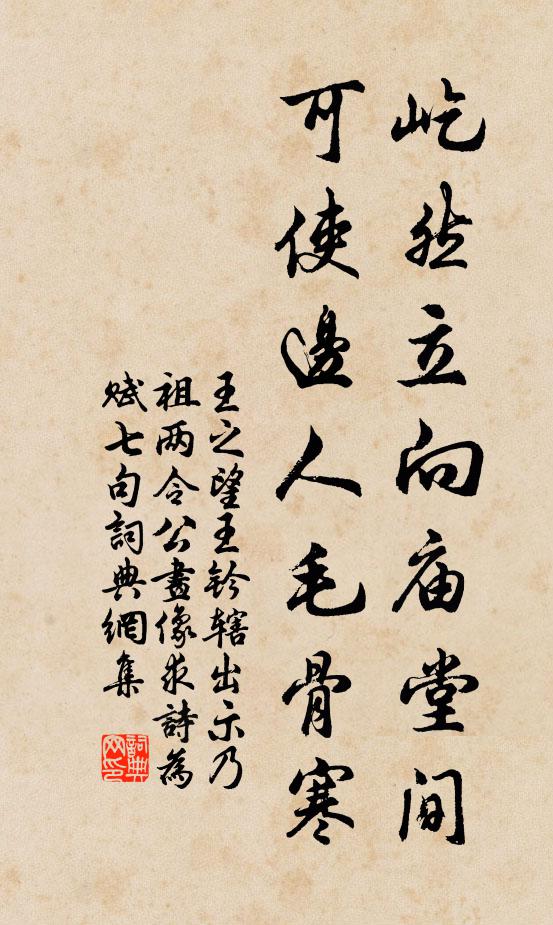 屹然立向庙堂間
可使邊人毛骨寒
王之望王鈐轄出示乃
祖两令公畫像求詩為
賦七句詞典網集
詞典网印